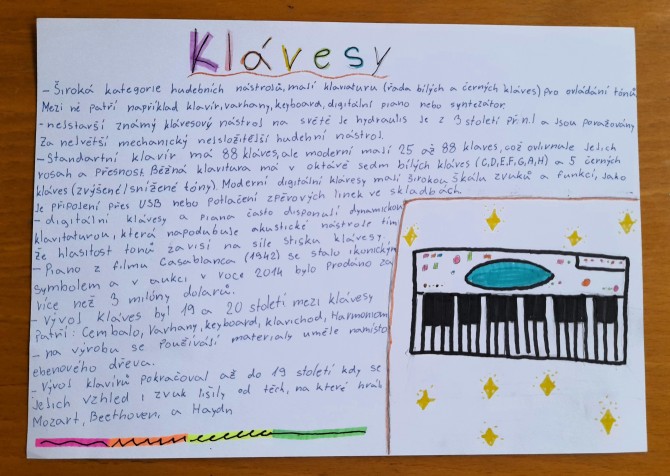 Klávesy
- Široká kategorie hudebních nástrolů, malí klaviaturu (řada bílých a černých kláves) pro ovládání tónů
Mezi ně patří například klavír, varhany, keyboard, digitální piano nebo syntezátor.
- nelstarší známý klávesový nástrol na světě je hydraulis Je z 3 století př.n.l a Jsou považovány
za největší mechanický nelsložitější hudební nástrol.
- Standartní klavír má 88 kláves, ale moderní malí 25 až 88 kláves, což ovlivnule Jelich
rosah a přesnost. Běžná klavitura má v oktávě sedm bílých kláves (C,D,E,F,G,A,H) a 5 černých
kláves (zvýšené/snížené tóny). Moderní digitální klávesy malí širokou škálu zvuků a funkcí, Jako
Je připolení přes USB nebo potlačení zpěvových linek ve skladbách.
- digitální klávesy a piana často disponulí dynamickou
klavitaturou, která napodobule akustické nástrole tím
že hlasitost tonů zavisí na síle stisku klávesy.
- Piano z filmu Casablanca (1942) se stalo ikonickým
symbolem a v aukci v roce 2014 bylo prodáno za
více než 3 milóny dolarů.
- Vývol kláves byl 19 a 20 století mezi klávesy
Patří: Cembalo, Varhany, keyboard, klavichod, Harmonium
- na výrobu se používálí materialy uměle namísto
ebenového dřeva.
- Vývol klavírů pokračoval až do 19 století kdy se
Jelich vzhled i zvuk lišily od těch, na které hrál
Mozart, Beethoven, a Haydn